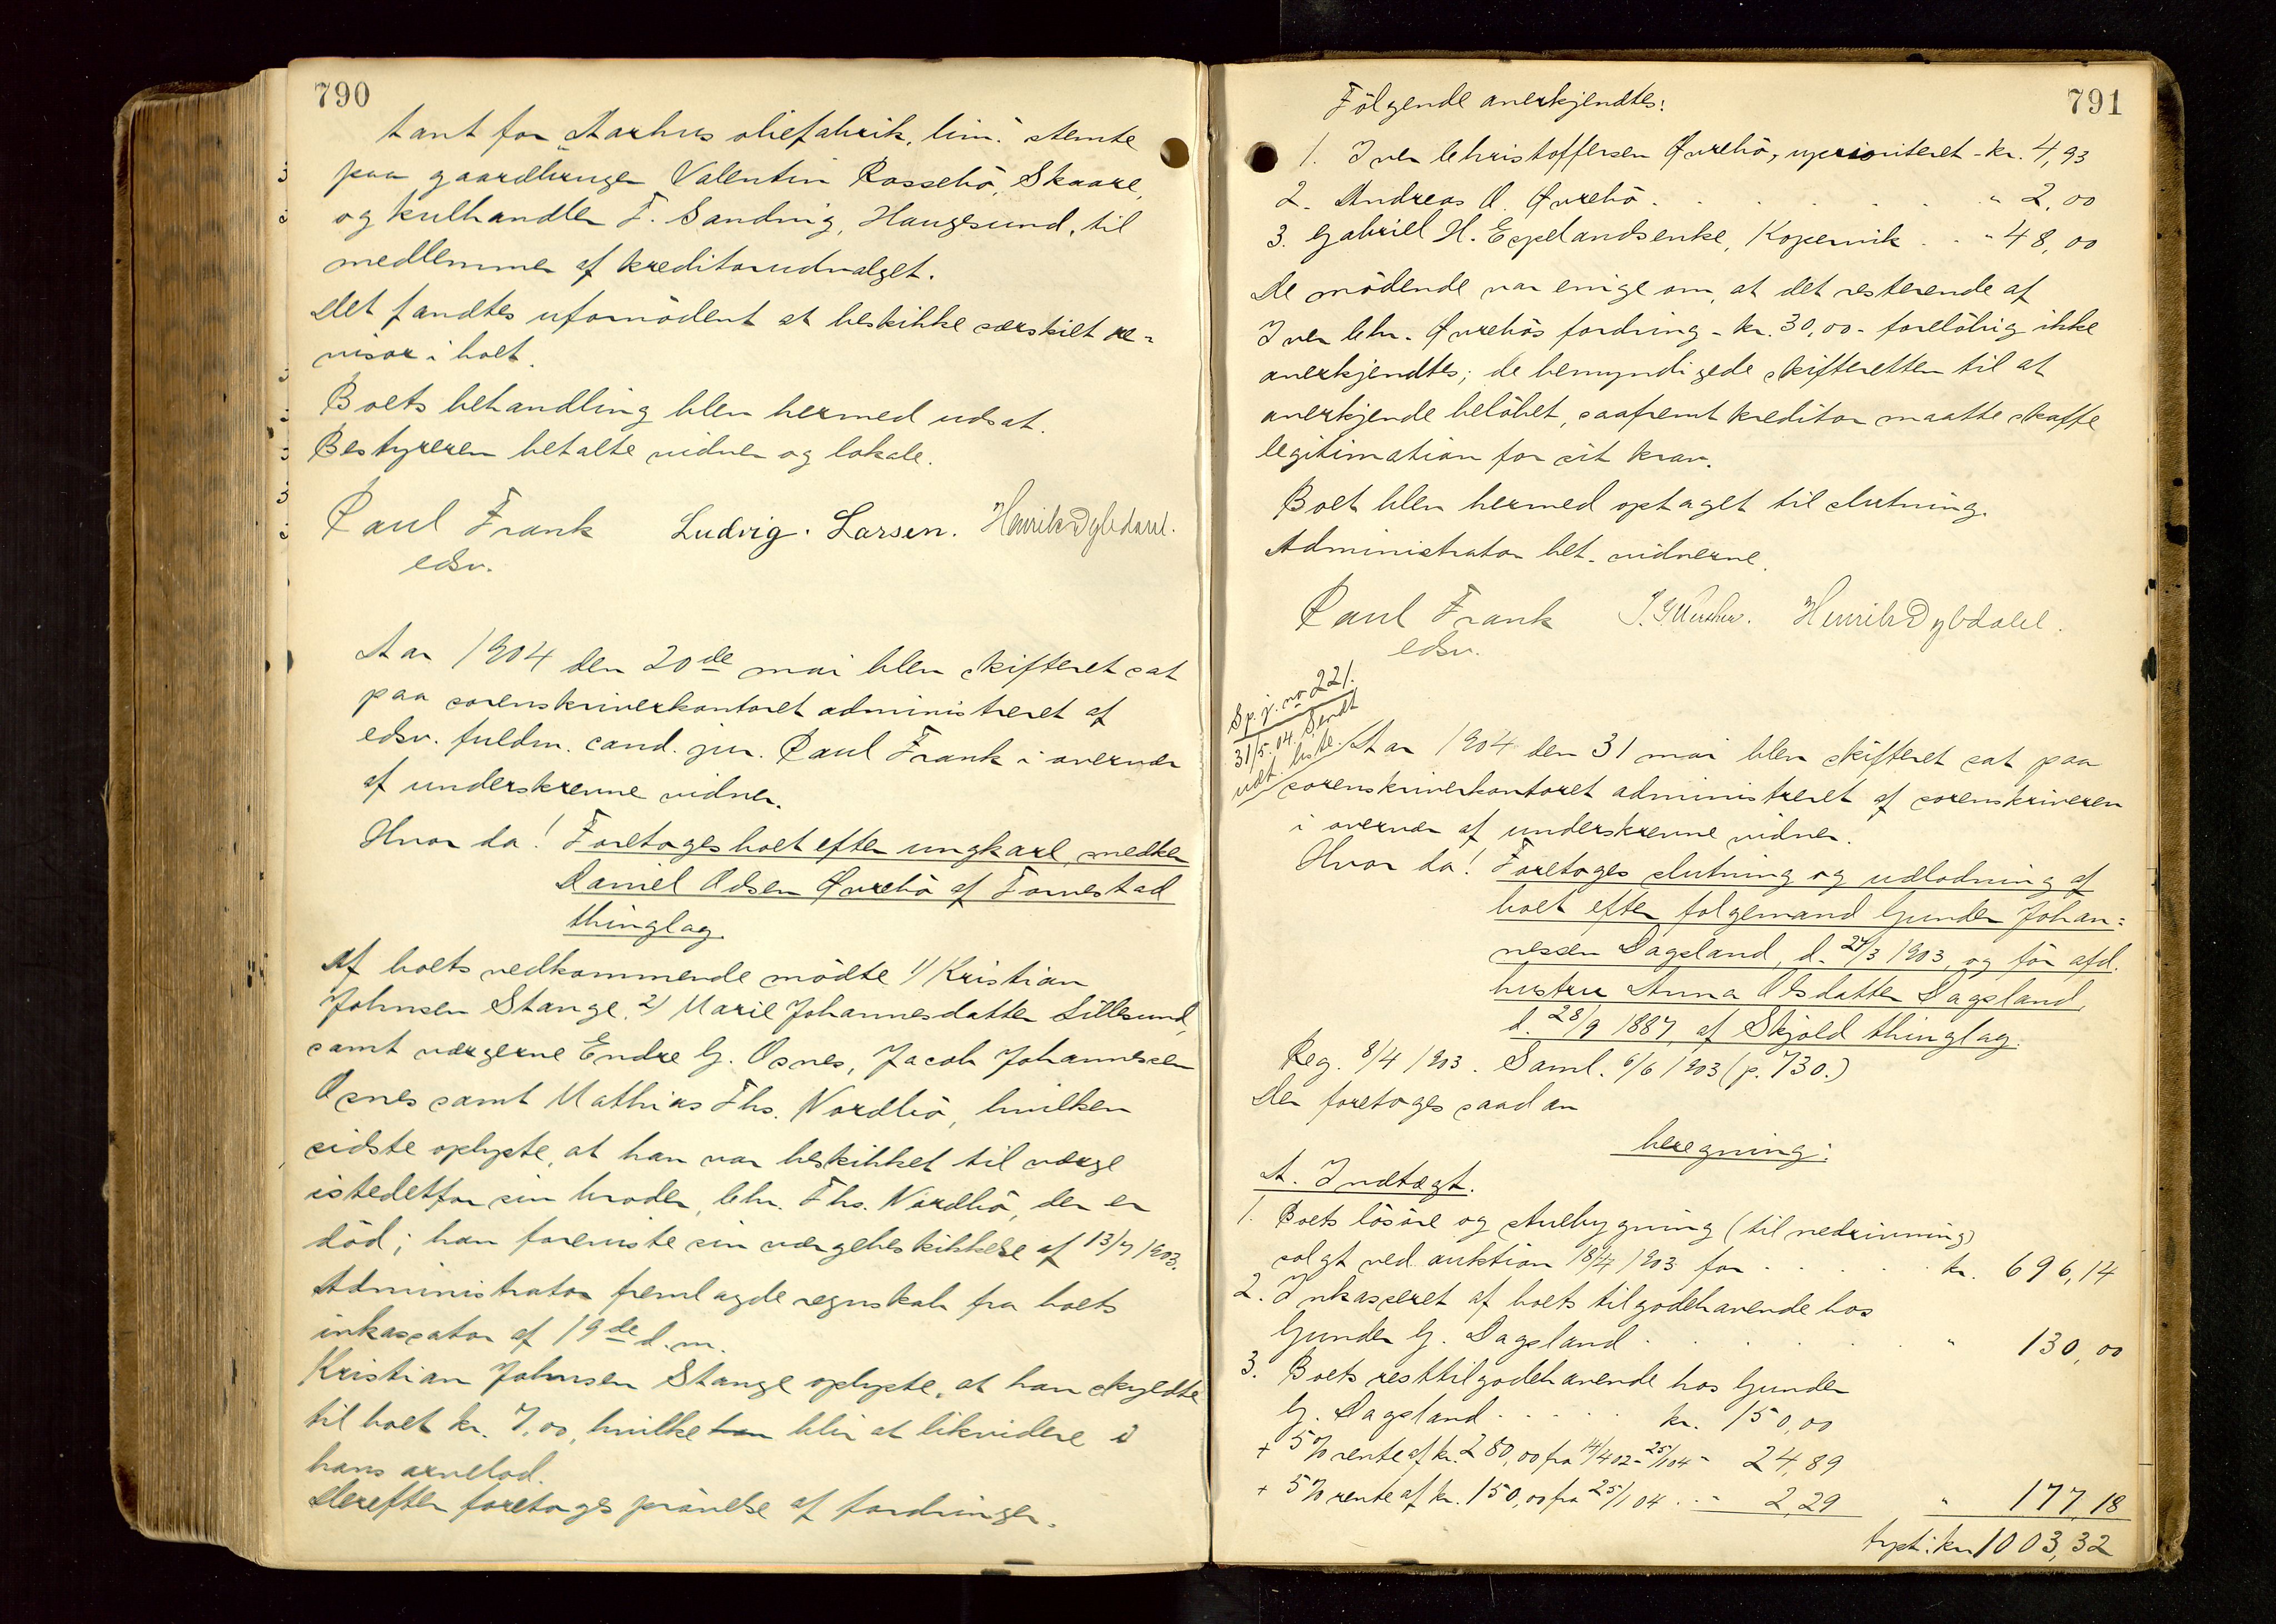 790
tant for "Aarhus oliefabrik, lim." stemte
paa gaardbruger Valentin Rossebö, Skaare,
og kulhandler F. Sandvig, Haugesund, til
medlemmer af kreditorudvalget.
Det fandtes ufornödent at beskikke særskilt re-
visor i boet.
Boets behandling blev hermed udsat.
Bestyreren betalte vidner og lokale.
Paul Frank Ludvig. Larsen. Henrik Dybdahl.
edsv.
Aar 1904 den 20de mai blev skifteret sat
paa sorenskriverkontoret administreret af
edsv. fuldm. cand. jur. Paul Frank i overvær
af underskrevne vidner.
Hvor da! Foretoges boet efter ungkarl, snedker
Daniel Olsen Øvrebö af Tornestad
thinglag.
Af boets vedkommende mödte 1/ Kristian
Johnsen Stange, 2/ Marie Johannesdatter Lillesund,
samt værgerne Endre G. Osnes, Jacob Johannesen
Osnes samt Mathias Ths. Nordbö, hvilken
sidste oplyste, at han var beskikket til værge
istedetfor sin broder, Chr. Ths. Nordbö, der er
död; han foreviste sin værgebeskikkelse af 13/7 1903.
Administrator fremlagde regnskab fra boets
inkassator af 19de d.m.
Kristian Johnsen Stange oplyste, at han skyldte
til boet kr. 7,00, hvilke blir at likvidere i
hans arvelod.
Derefter foretoges prövelse af fordringer.
791
Fölgende anerkjendtes:
1. Iver Christoffersen Øvrebö, uprioriteret - kr. 4,93
2. Andreas O. Øvrebö . . . . . . . " 2,00
3. Gabriel H. Espelandsenke, Kopervik . . " 48,00
De mödende var enige om, at det resterende af
Iver Chr. Øvrebös fordring - kr. 30,00 - forelöbig ikke
anerkjendtes; de bemyndigede skifteretten til at
anerkjende belöbet, saafremt kreditor maatte skaffe
legitimation for sit krav.
Boet blev hermed optaget til slutning.
Administrator bet. vidnerne.
Paul Frank Henrik Dybdahl.
edsv.
Sp. j. no 221.
31/5.04 Sendt
udt. liste.
Aar 1904 den 31 mai blev skifteret sat paa
sorenskriverkontoret administreret af sorenskriveren
i overvær af underskrevne vidner.
Hvor da! Foretoges slutning og udlodning af
boet efter folgemand Gunder Johan-
nessen Dagsland, d. 27/3 1903, og för afd.
hustru Anna Olsdatter Dagsland,
d. 28/9 1887, af Skjold thinglag.
Reg. 8/4 1903. Saml. 6/6 1903 (p. 730.)
Der foretoges saadan
beregning:
A. Indtægt.
1. Boets lösöre og stuebygning (til nedrivning)
solgt ved auktion 18/4 1903 for . . . . . kr. 696,14
2. Inkasseret af boets tilgodehavende hos
Gunder G. Dagsland . . . . . " 130,00
3. Boets resttilgodehavende hos Gunder
G. Dagsland . . . . . kr. 150,00
+ 5% rente af kr. 280,00 fra 14/4 02 - 25/1 04 - 24,89
+ 5% rente af kr. 150,00 fra 25/1 04 . . - 2,29 " 177,18
trspt: kr. 1003,32